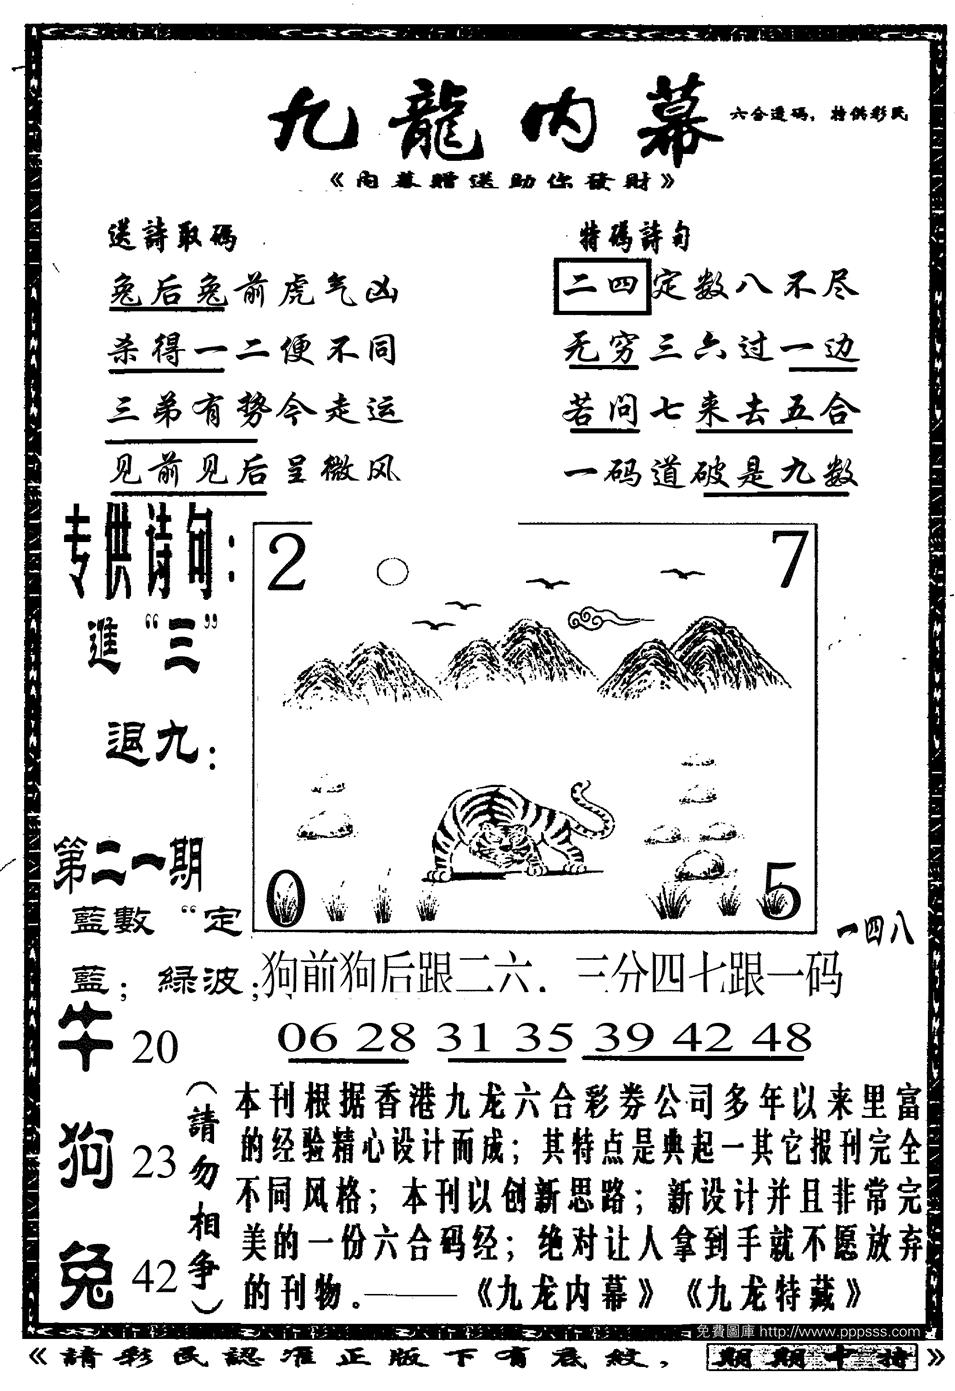 九龍内幕
六合透码，特供彩民
《内幕贈送助你發財》
送詩取碼
兔后兔前虎气凶
杀得一二便不同
三弟有势今走运
见前见后呈微风
特碼詩句
二四定数八不尽
无穷三六过一边
若问七来去五合
一码道破是九数
专供诗句：
進“三”
退九：
第二一期
藍數“定
藍；綠波；
2
7
0
5
一四八
狗前狗后跟二六．三分四七跟一码
06 28 31 35 39 42 48
牛 20
狗 23
兔 42
（請勿相争）
本刊根据香港九龙六合彩券公司多年以来里富
的经验精心设计而成；其特点是典起一其它报刊完全
不同风格；本刊以创新思路；新设计并且非常完
美的一份六合码经；绝对让人拿到手就不愿放弃
的刊物。——《九龙内幕》《九龙特藏》
免費圖庫 http://www.pppsss.com
《請彩民認准正版下有底紋，期期中特》